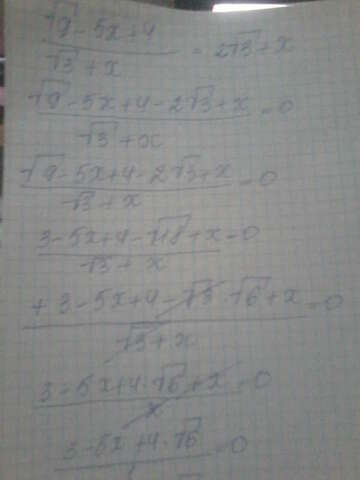 √9 - 5x + 4 / √3 + x = 2√3 + x
√9 - 5x + 4 - 2√3 + x / √3 + x = 0
√9 - 5x + 4 - 2√3 + x / √3 + x = 0
3 - 5x + 4 - √18 + x / √3 + x = 0
+ 3 - 5x + 4 - √3 · √6 + x / √3 + x = 0
3 - 5x + 4 · √6 + x / x = 0
3 - 5x + 4 · √6 / 1 = 0